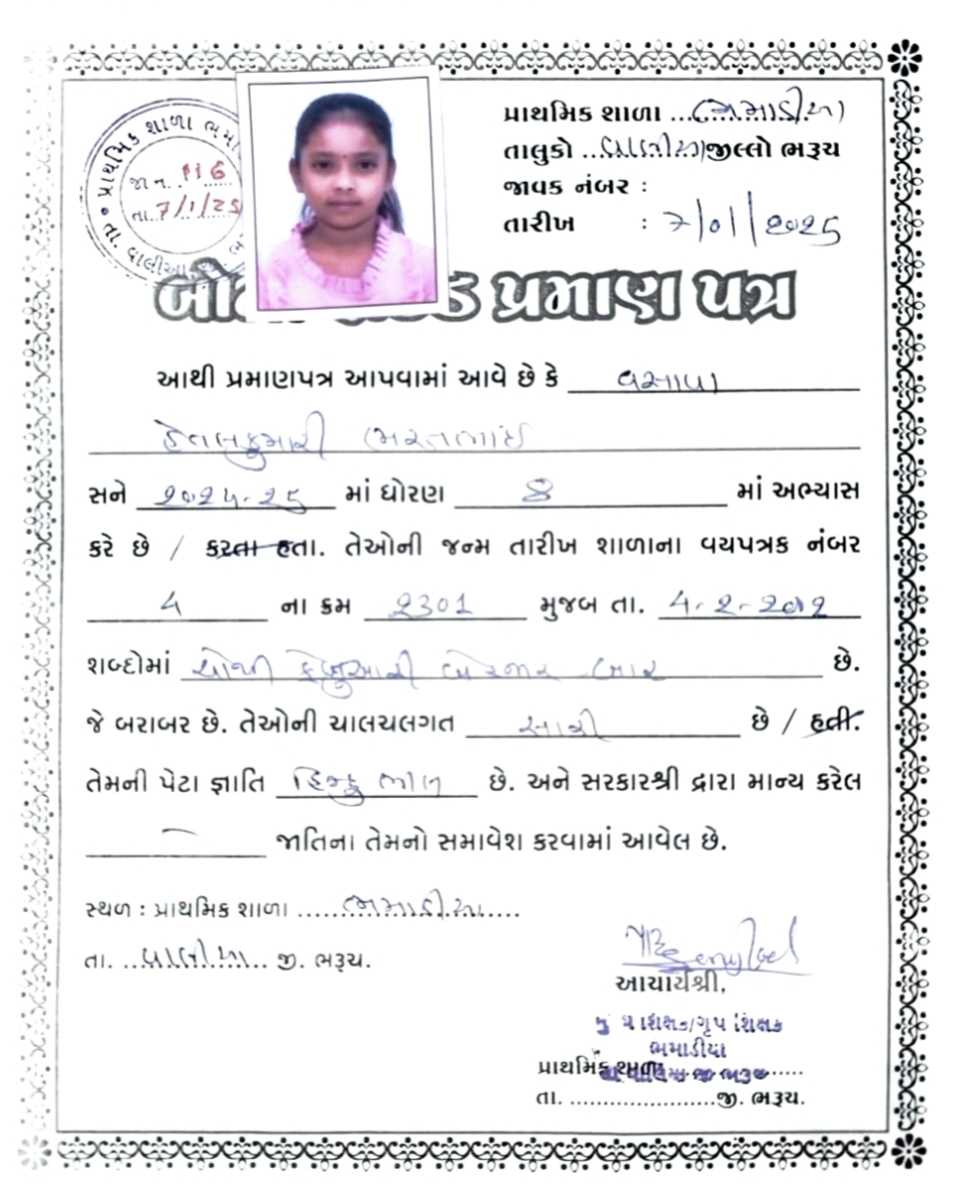 પ્રાથમિક શાળા ભમા
જા નં. 116
તા. 7/1/25
તા. વાલીઆ
પ્રાથમિક શાળા ...ભમાડીયા
તાલુકો ...વાલીયા જીલ્લો ભરૂચ
જાવક નંબર :
તારીખ : 7/01/2025
પ્રમાણ પત્ર
આથી પ્રમાણપત્ર આપવામાં આવે છે કે વસાવા
હેતલકુમારી ભરતભાઈ
સને 2024-25 માં ધોરણ 8 માં અભ્યાસ
કરે છે / કરતા હતા. તેઓની જન્મ તારીખ શાળાના વયપત્રક નંબર
4 ના ક્રમ 2301 મુજબ તા. 4-2-2012
શબ્દોમાં ચોથી ફેબ્રુઆરી બે હજાર બાર છે.
જે બરાબર છે. તેઓની ચાલચલગત સારી છે / હતી.
તેમની પેટા જ્ઞાતિ હિન્દુ ભીલ છે. અને સરકારશ્રી દ્વારા માન્ય કરેલ
જાતિના તેમનો સમાવેશ કરવામાં આવેલ છે.
સ્થળ : પ્રાથમિક શાળા ....ભમાડીયા....
તા. ...વાલીયા... જી. ભરૂચ.
આચાર્યશ્રી,
મુખ્ય શિક્ષક/ગૃપ શિક્ષક
ભમાડીયા
પ્રાથમિક શાળા
તા. વાલિયા જી ભરૂચ
તા. ......................જી. ભરૂચ.